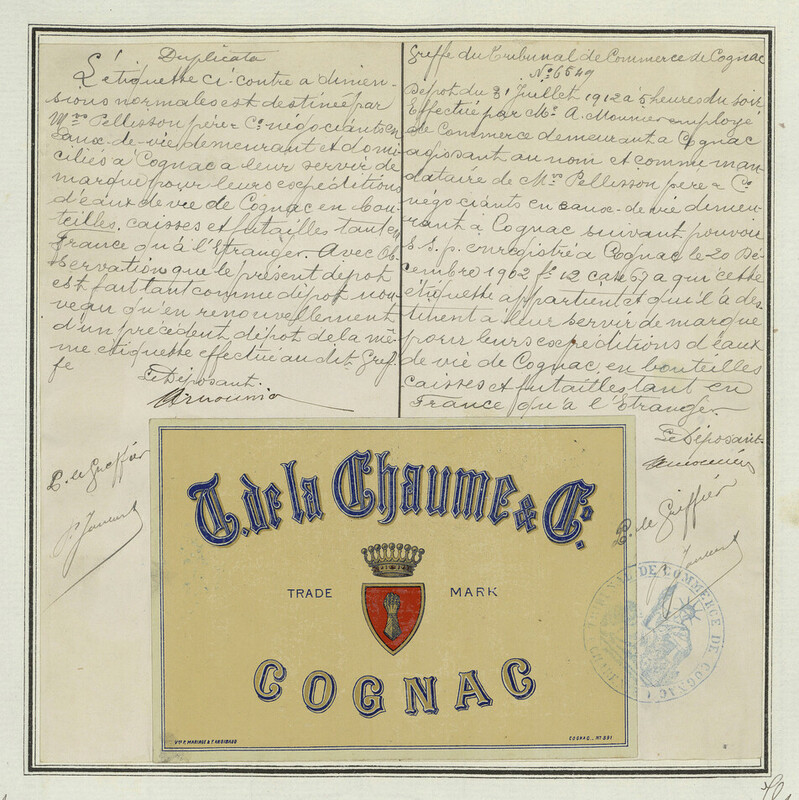 Duplicata
L'étiquette ci-contre a dimen-
sions normales est destinée par
Mrs Pellisson père & Co négociants en
Eaux-de-vie demeurant et domi-
ciliés à Cognac a leur servir de
marque pour leurs expéditions
d'eaux de vie de Cognac en bou-
teilles, caisses et futailles tant en
France qu'à l'Etranger. Avec Ob-
servation que le présent dépot
est fait tant comme dépot nou-
veau qu'en renouvellement
d'un précédent dépot de la mê-
me etiquette effectué au dit Gref-
fe
Le Déposant.
Greffe du Tribunal de Commerce de Cognac
No 6549
Dépot du 31 Juillet 1912 à 5 heures du soir
Effectué par Mr A. Mounier employé
de Commerce demeurant a Cognac
agissant au nom et comme man-
dataire de Mrs Pellisson pere & Co
négociants en eaux-de-vie demeu-
rant à Cognac suivant pouvoir
S. S. p. enregistré a Cognac le 20 Dé-
cembre 1902 fo 12 case 67 a qui cette
étiquette appartient et qu'il a des-
tinent a leur servir de marque
pour leurs expéditions d'eaux
de vie de Cognac, en bouteilles
caisses et futailles tant en
France qu'a l'Etranger.
Le Déposant.
P. le Greffier
P. le Greffier
T. de la Chaume & Co.
TRADE MARK
COGNAC
Vve P. MARIAGE & F. ARCIBAUD
COGNAC, No 591
TRIBUNAL DE COMMERCE DE COGNAC